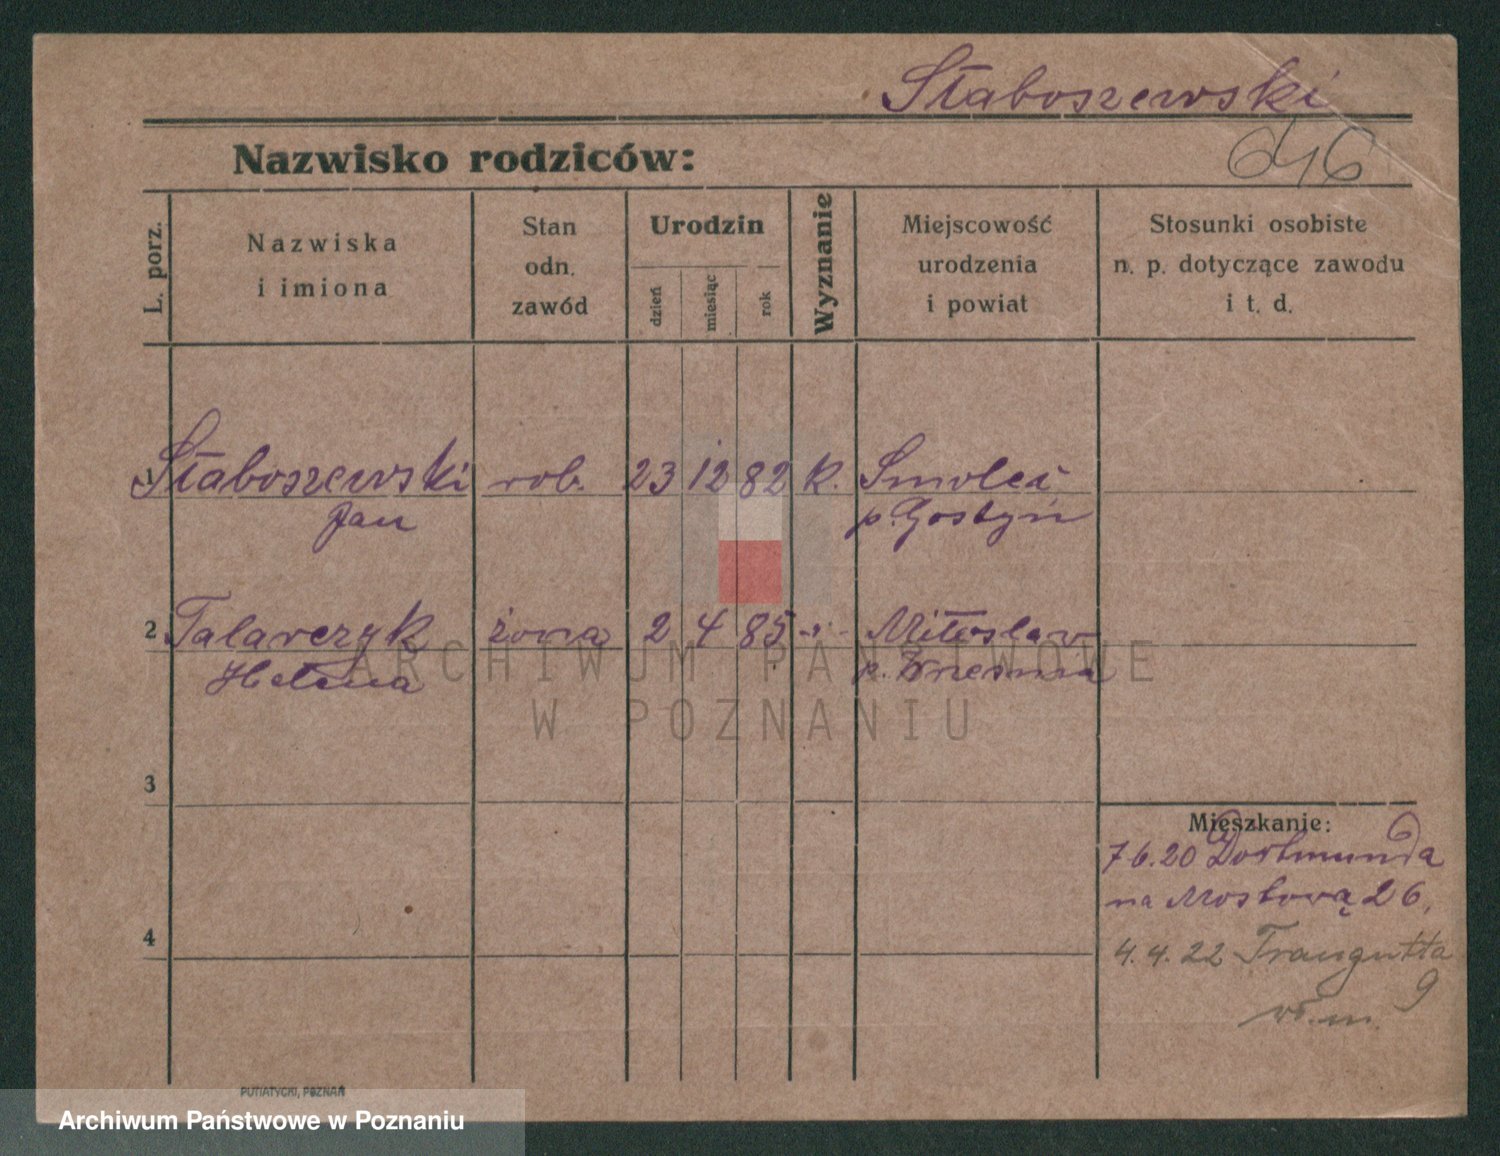 Słaboszewski
Nazwisko rodziców:
L. porz.
Nazwiska
i imiona
Stan
odn.
zawód
Urodzin
dzień
miesiąc
rok
Wyznanie
Miejscowość
urodzenia
i powiat
Stosunki osobiste
n. p. dotyczące zawodu
i t. d.
1 Słaboszewski rob. 23 12 82 k.
Jan p. Gostyń
2 Talarczyk żona 2 4 85 -"- Miłosław
Helena p. Września
ARCHIWUM PAŃSTWOWE
W POZNANIU
3
Mieszkanie:
7.6.20 Dortmunda
na Mostową 26,
4
4.4.22 Traugutta
9
PUTIATYCKI, POZNAŃ
Archiwum Państwowe w Poznaniu